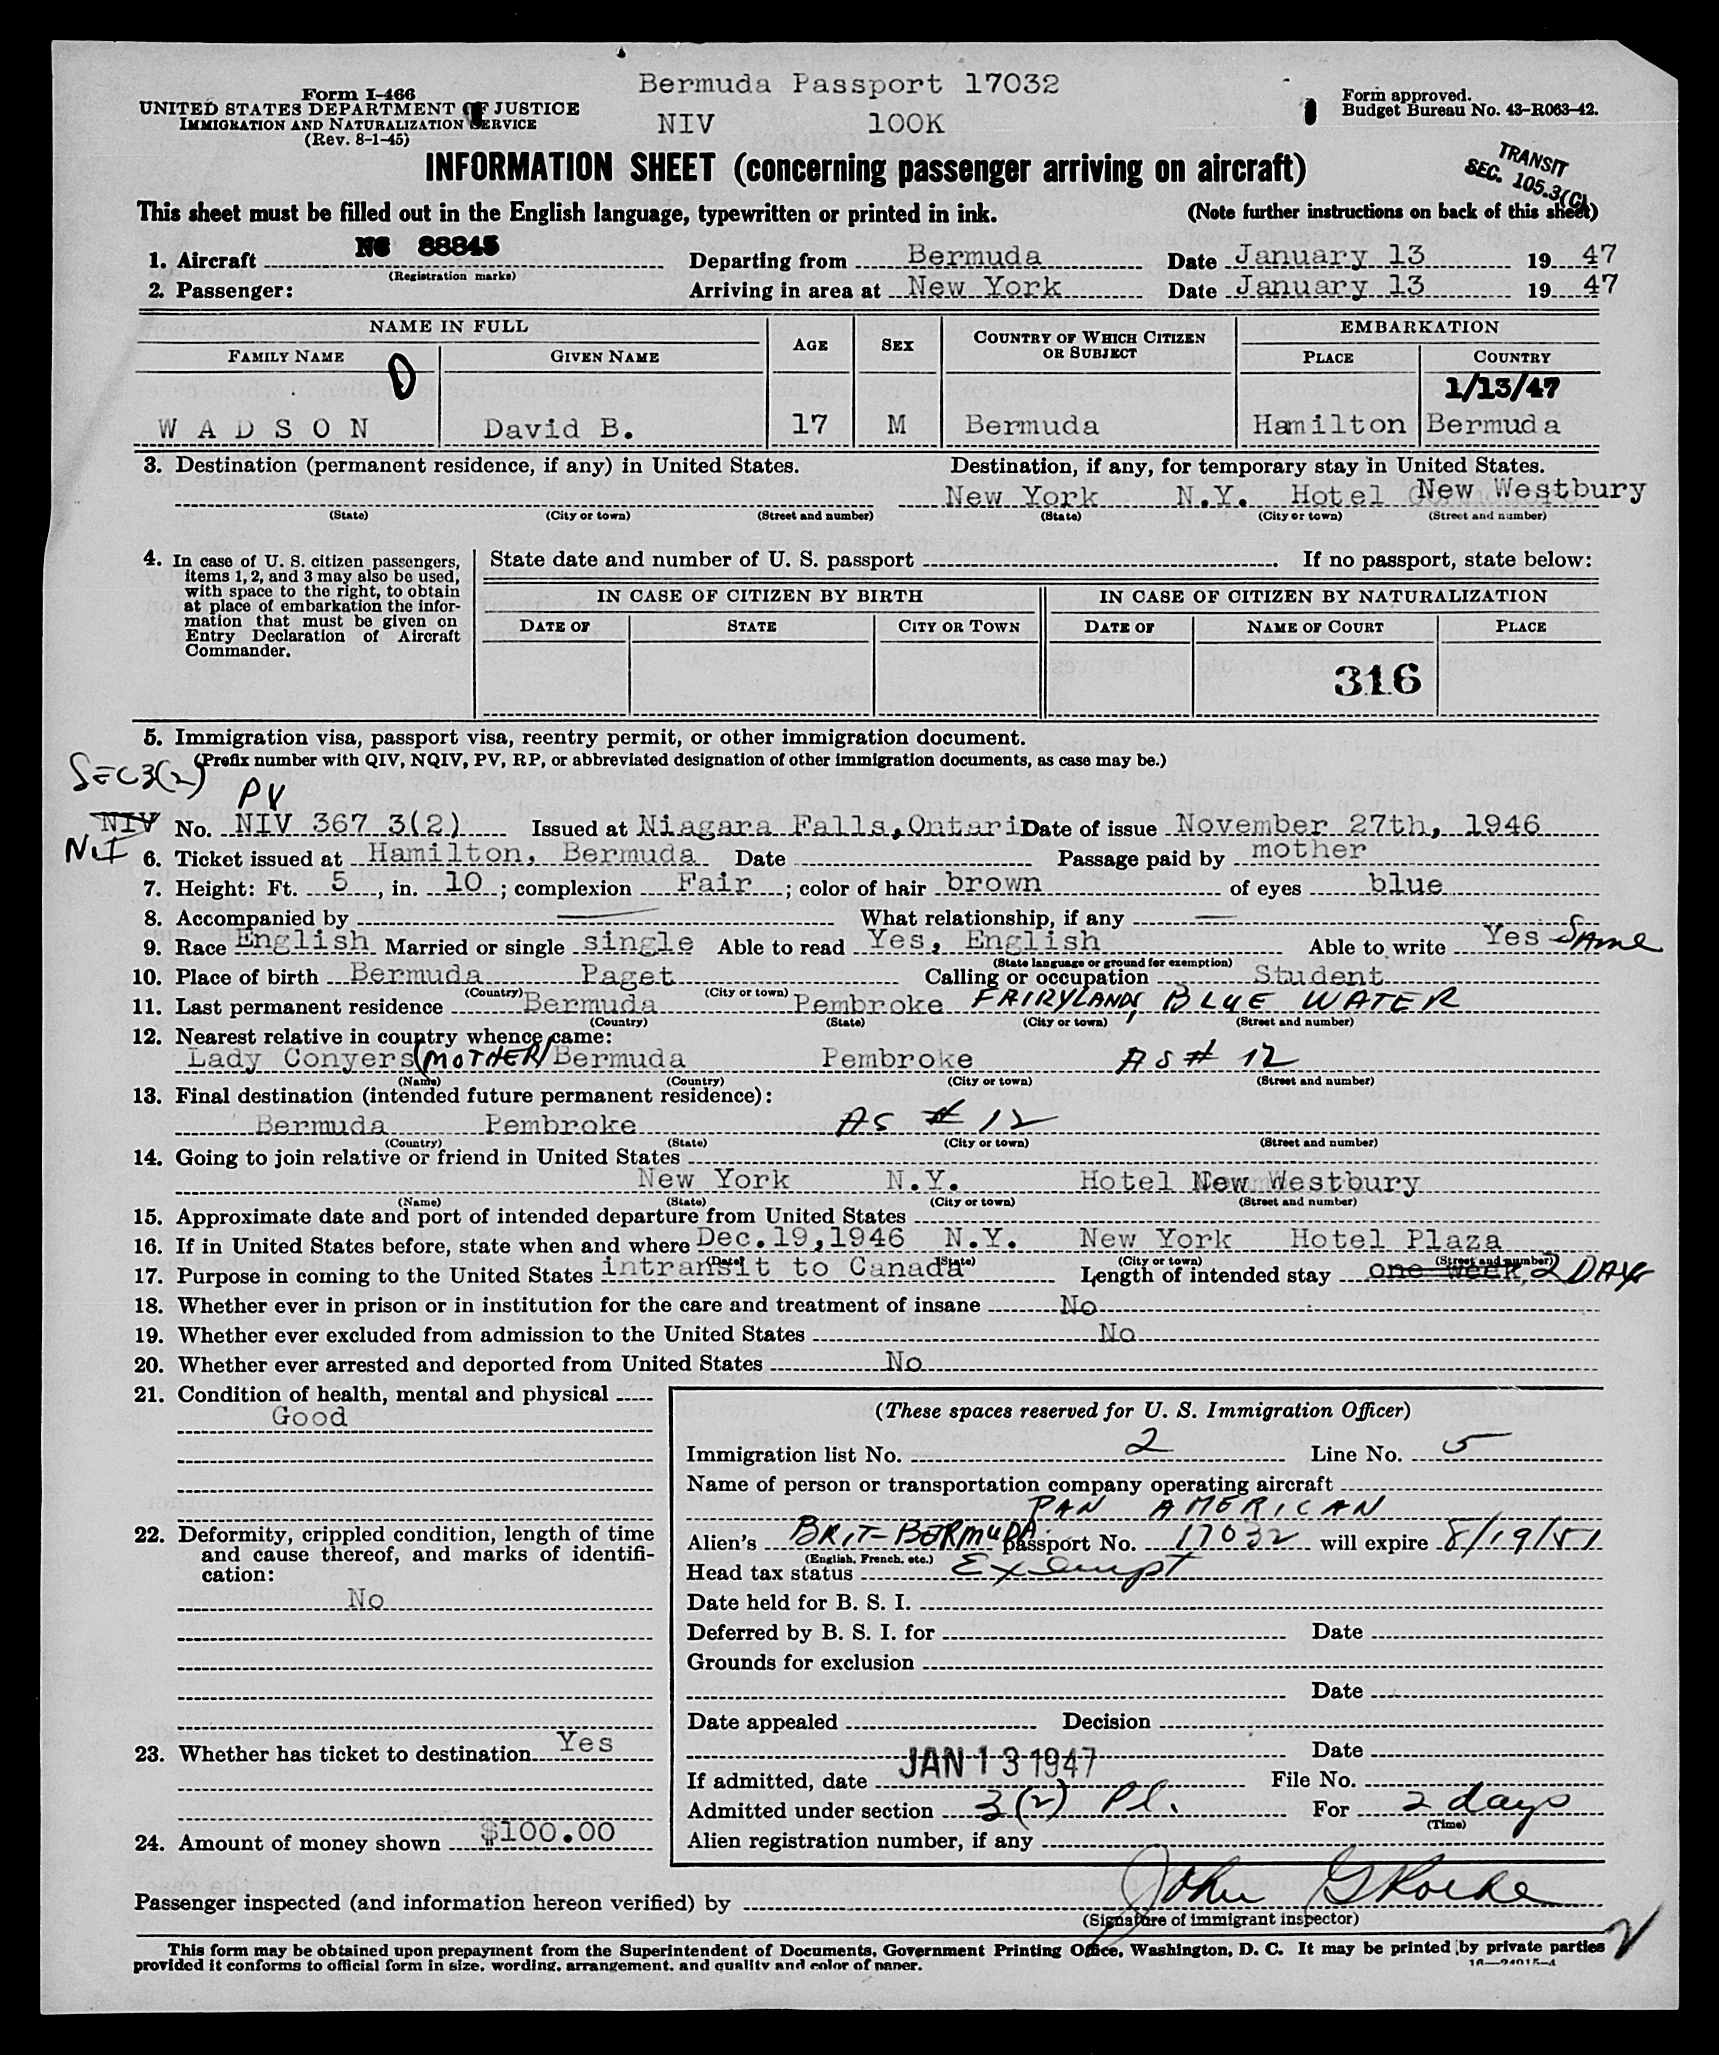 Bermuda Passport 17032
Form I-466
UNITED STATES DEPARTMENT OF JUSTICE
IMMIGRATION AND NATURALIZATION SERVICE
(Rev. 8-1-45)
NIV 100K
Form approved.
Budget Bureau No. 43-R063-42.
INFORMATION SHEET (concerning passenger arriving on aircraft)
TRANSIT
SEC. 105.3(C)
This sheet must be filled out in the English language, typewritten or printed in ink. (Note further instructions on back of this sheet)
1. Aircraft NC 88845 Departing from Bermuda Date January 13 1947
(Registration marks)
2. Passenger: Arriving in area at New York Date January 13 1947
NAME IN FULL AGE SEX COUNTRY OF WHICH CITIZEN OR SUBJECT EMBARKATION
FAMILY NAME GIVEN NAME PLACE COUNTRY
1/13/47
W A D S O N David B. 17 M Bermuda Hamilton Bermuda
3. Destination (permanent residence, if any) in United States. Destination, if any, for temporary stay in United States.
New York N.Y. Hotel New Westbury
(State) (City or town) (Street and number) (State) (City or town) (Street and number)
4. In case of U. S. citizen passengers, items 1, 2, and 3 may also be used, with space to the right, to obtain at place of embarkation the information that must be given on Entry Declaration of Aircraft Commander.
State date and number of U. S. passport . If no passport, state below:
IN CASE OF CITIZEN BY BIRTH IN CASE OF CITIZEN BY NATURALIZATION
DATE OF STATE CITY OR TOWN DATE OF NAME OF COURT PLACE
316
5. Immigration visa, passport visa, reentry permit, or other immigration document.
(Prefix number with QIV, NQIV, PV, RP, or abbreviated designation of other immigration documents, as case may be.)
SEC 3(2)
PV
NIV No. NIV 367 3(2) Issued at Niagara Falls, Ontari Date of issue November 27th, 1946
NI 6. Ticket issued at Hamilton, Bermuda Date Passage paid by mother
7. Height: Ft. 5, in. 10; complexion Fair; color of hair brown of eyes blue
8. Accompanied by — What relationship, if any —
9. Race English Married or single single Able to read Yes, English Able to write Yes SAME
(State language or ground for exemption)
10. Place of birth Bermuda Paget Calling or occupation Student
(Country) (City or town)
11. Last permanent residence Bermuda Pembroke FAIRYLANDS, BLUE WATER
(Country) (State) (City or town) (Street and number)
12. Nearest relative in country whence came:
Lady Conyers (MOTHER) Bermuda Pembroke AS # 12
(Name) (Country) (City or town) (Street and number)
13. Final destination (intended future permanent residence):
Bermuda Pembroke AS # 12
(Country) (State) (City or town) (Street and number)
14. Going to join relative or friend in United States
New York N.Y. Hotel New Westbury
(Name) (State) (City or town) (Street and number)
15. Approximate date and port of intended departure from United States
16. If in United States before, state when and where Dec. 19, 1946 N.Y. New York Hotel Plaza
(Date) (State) (City or town) (Street and number)
17. Purpose in coming to the United States intransit to Canada Length of intended stay one week, 2 DAYS
18. Whether ever in prison or in institution for the care and treatment of insane No
19. Whether ever excluded from admission to the United States No
20. Whether ever arrested and deported from United States No
21. Condition of health, mental and physical
Good
22. Deformity, crippled condition, length of time
and cause thereof, and marks of identifi-
cation:
No
23. Whether has ticket to destination Yes
24. Amount of money shown $100.00
(These spaces reserved for U. S. Immigration Officer)
Immigration list No. 2 Line No. 5
Name of person or transportation company operating aircraft
PAN AMERICAN
Alien's BRIT-BERMUDA passport No. 17032 will expire 8/19/51
(English, French, etc.)
Head tax status Exempt
Date held for B. S. I.
Deferred by B. S. I. for Date
Grounds for exclusion
Date
Date appealed Decision
Date
If admitted, date JAN 13 1947 File No.
Admitted under section 3(2) Pl. For 2 days
(Time)
Alien registration number, if any
Passenger inspected (and information hereon verified) by John
(Signature of immigrant inspector)
This form may be obtained upon prepayment from the Superintendent of Documents, Government Printing Office, Washington, D. C. It may be printed by private parties
provided it conforms to official form in size, wording, arrangement, and quality and color of paper.
16—24015-4